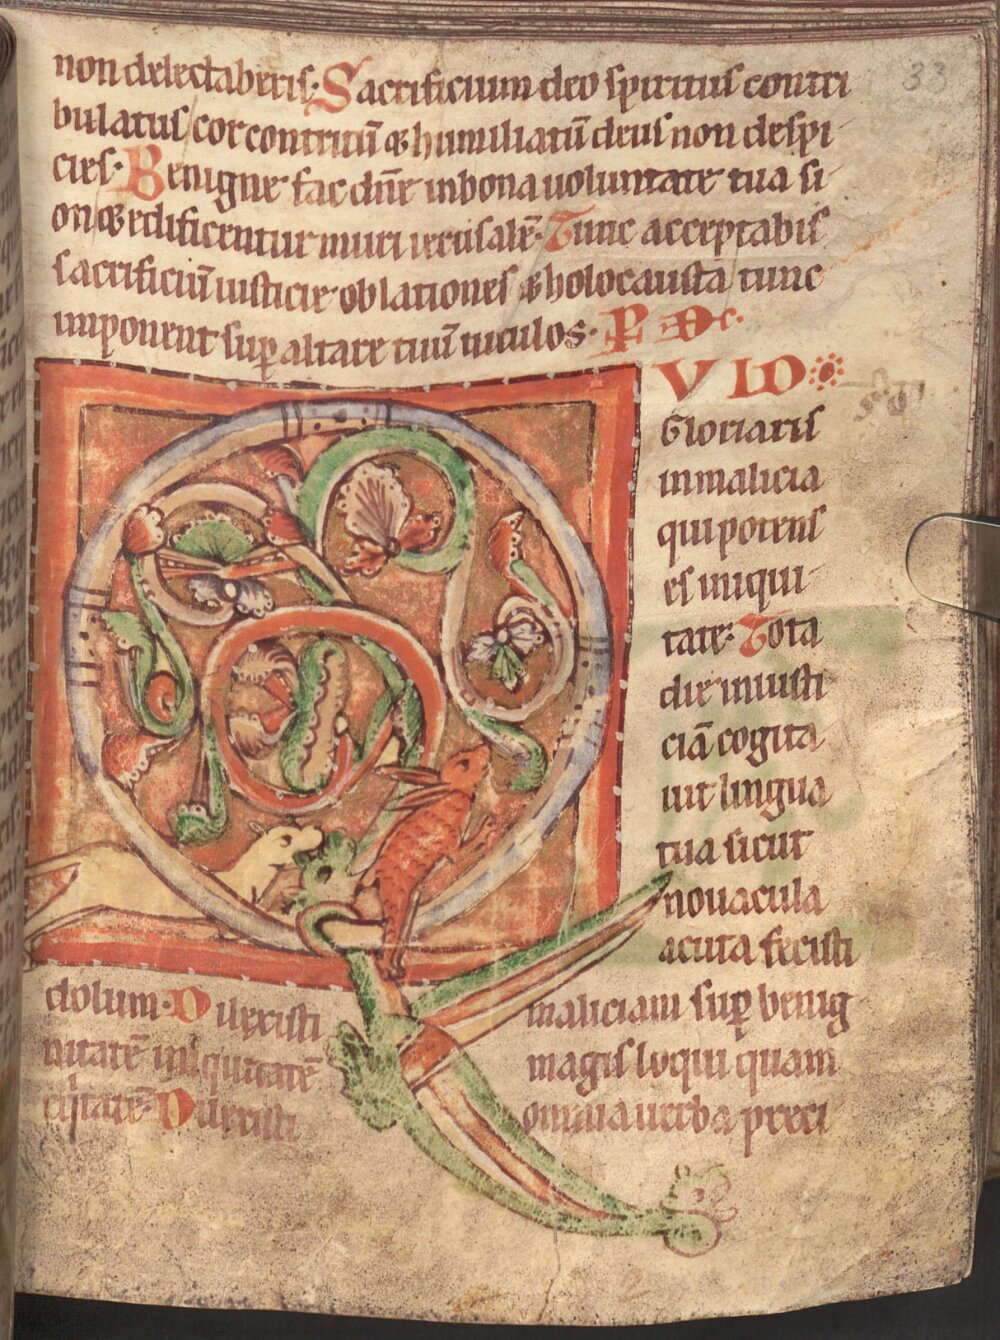 33
non delectaberis. Sacrificium deo spiritus contri
bulatus cor contritū & humiliatū deus non despi
cies. Benigne fac dn̄e in bona uoluntate tua si
on & edificentur muri ierusalē. Tunc acceptabis
sacrificiū iusticie oblationes & holocausta tunc
imponent sup̱ altare tuū uitulos.
Q VID
Gloriaris
in malicia
qui potens
es iniqui
tate. Tota
die iniusti
ciā cogita
uit lingua
tua sicut
nouacula
acuta fecisti
dolum. Dilexisti maliciam sup̱ benig
nitatē iniquitatē magis loqui quam
eq̇tatē. Dilexisti omnia uerba preci